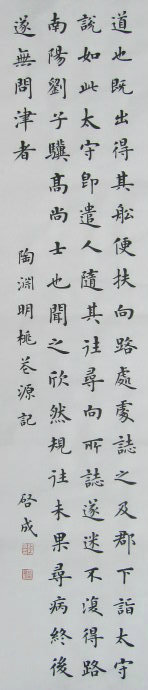 道也既出得其船便扶向路處處誌之及郡下詣太守
說如此太守即遣人隨其往尋向所誌遂迷不復得路
南陽劉子驥高尚士也聞之欣然規往未果尋病終後
遂無問津者
陶淵明桃花源記
啓成